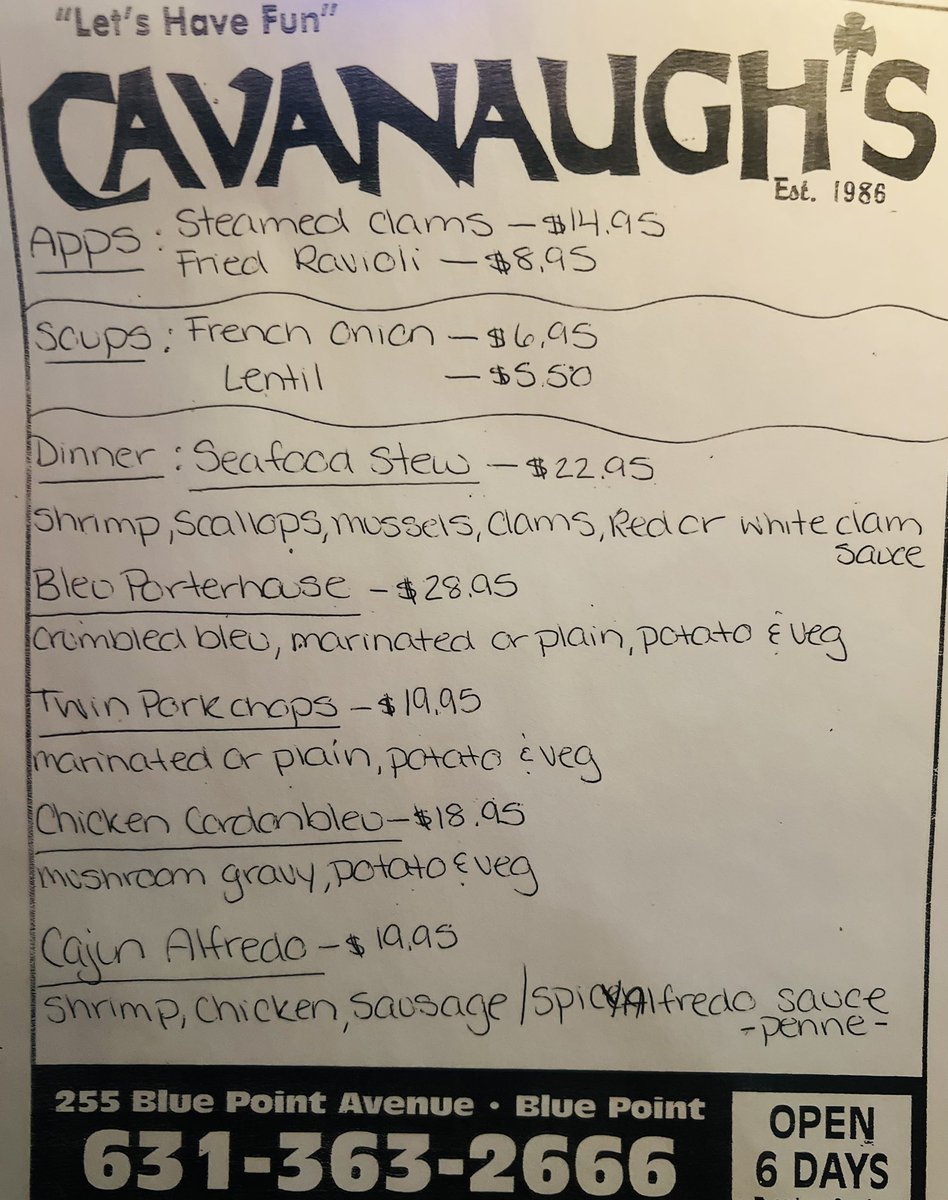 "Let's Have Fun"
CAVANAUGH'S
Est. 1986
Apps: Steamed Clams - $14.95
Fried Ravioli - $8.95
Soups: French Onion - $6.95
Lentil - $5.50
Dinner: Seafood Stew - $22.95
Shrimp, Scallops, mussels, Clams, Red or white clam
sauce
Bleu Porterhouse - $28.95
crumbled bleu, marinated or plain, potato & veg
Twin Pork chops - $19.95
marinated or plain, potato & veg
Chicken Cordonbleu - $18.95
mushroom gravy, potato & veg
Cajun Alfredo - $19.95
Shrimp, Chicken, Sausage / Spicy Alfredo sauce
- penne -
255 Blue Point Avenue • Blue Point
631-363-2666
OPEN
6 DAYS